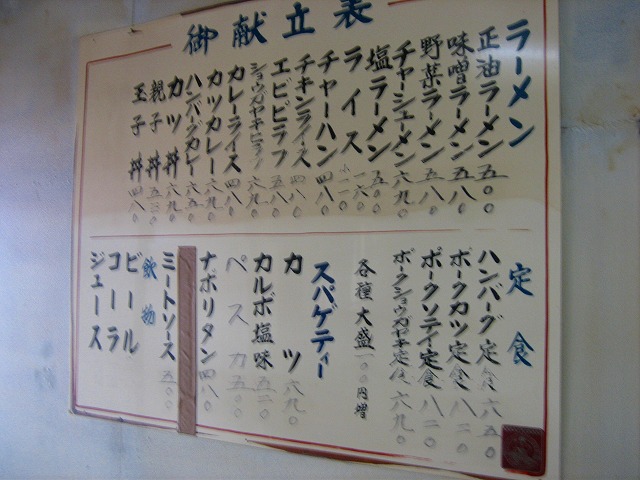 御献立表
ラーメン
正油ラーメン 五〇〇
味噌ラーメン 五八〇
野菜ラーメン 五八〇
チャーシューメン 六九〇
塩ラーメン 五〇〇
ライス 一六〇
チャーハン 四八〇
チキンライス 四八〇
エビピラフ 五八〇
ショウガヤキピラフ 六九〇
カレーライス 四八〇
カツカレー 六九〇
ハンバーグカレー 六五〇
カツ丼 六九〇
親子丼 五三〇
玉子丼 四八〇
定食
ハンバーグ定食 六五〇
ポークカツ定食 八二〇
ポークソテイ定食 八二〇
ポークショウガヤキ定食 六九〇
各種大盛一〇〇円増
スパゲティー
カツ 六九〇
カルボ塩味 五二〇
ペスカ 五〇〇
ナポリタン 四八〇
ミートソース 五〇〇
飲物
ビール
コーラ
ジュース